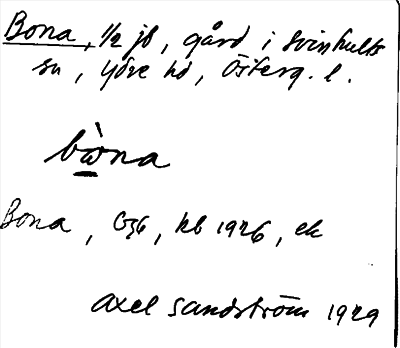 Bona, 1/2 jb, gård i Svinhults
sn, Ydre hd, Österg. l.
bòna
Bona, kb 1926, ek
Axel Sandström 1929